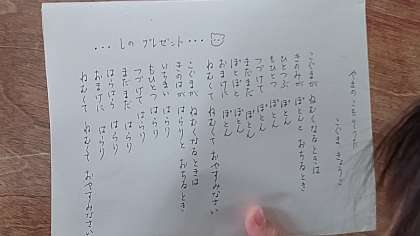 やまのこもりうた
こぐま きょうこ
こぐまが ねむくなるときは
きのみが ぽとんと おちるとき
ひとつぶ ぽとん
もひとつ ぽとん
つづけて ぽとん
まだまだ ぽとん
ぽとぽと ぽとん
おまけに ぽとん
ねむくて ねむくて おやすみなさい
こぐまが ねむくなるときは
きのはが はらりと おちるとき
いちまい はらり
もひとつ はらり
つづけて はらり
まだまだ はらり
はらはら はらり
おまけに はらり
ねむくて ねむくて おやすみなさい
...しの プレゼント...